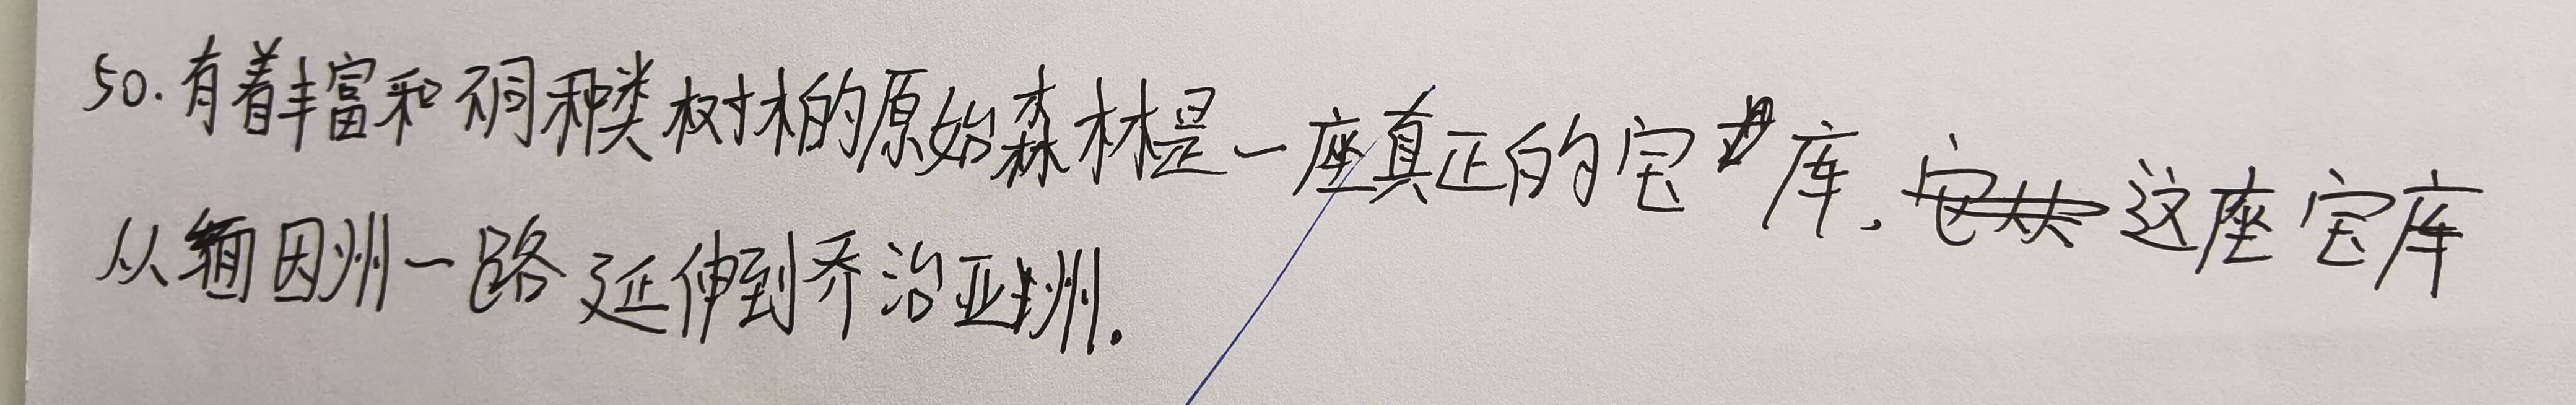 50.有着丰富和不同种类树木的原始森林是一座真正的宝库,这座宝库
从缅因州一路延伸到乔治亚州.